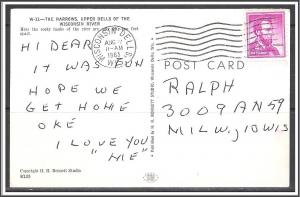 W-11—THE NARROWS, UPPER DELLS OF THE
WISCONSIN RIVER
Here the rocky banks of the river are only fifty-two feet
apart.
WISCONSIN DELLS
AUG
11-AM
1963
POST CARD
HI DEAR
IT WAS FUN
HOPE WE
GET HOME
OKÉ
I LOVE YOU
"ME"
RALPH
3009 A N 59
MILW, 10 WIS
H. H. BENNETT STUDIO, Wisconsin Dells, Wis.
Copyright H. H. Bennett Studio